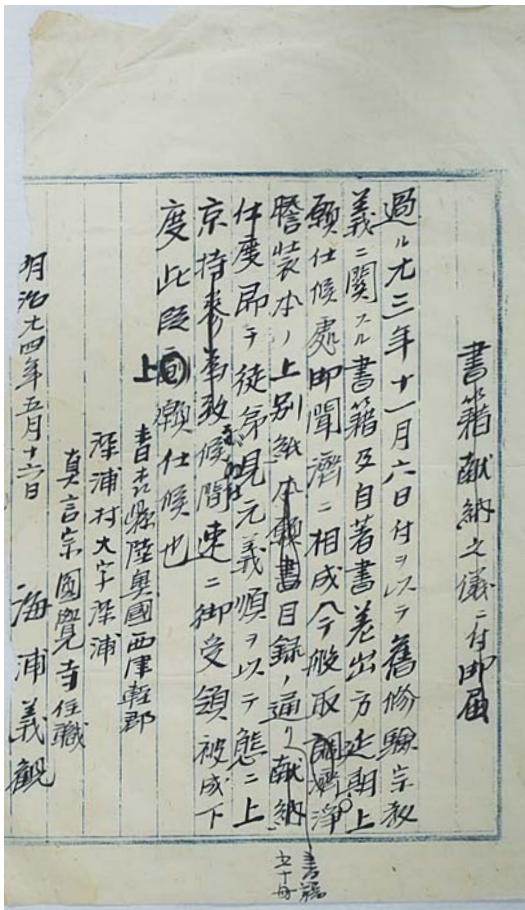 書籍献納之儀ニ付御届
過ル廿三年十一月六日付ヲ以テ舊修驗宗教
義ニ關スル書籍及自著書差出方延期上
願仕候處御聞濟ニ相成今般取調濟淨
謄装本ノ上別紙本願書目録ノ通リ献納
仕度即チ徒弟見元義順ヲ以テ態ニ上
京持参為致候間速ニ御受領被成下
度此段上願仕候也
青森縣陸奥國西津輕郡
深浦村大字深浦
真言宗圓覺寺住職
海浦義觀
明治廿四年五月十六日
書籍
五十冊